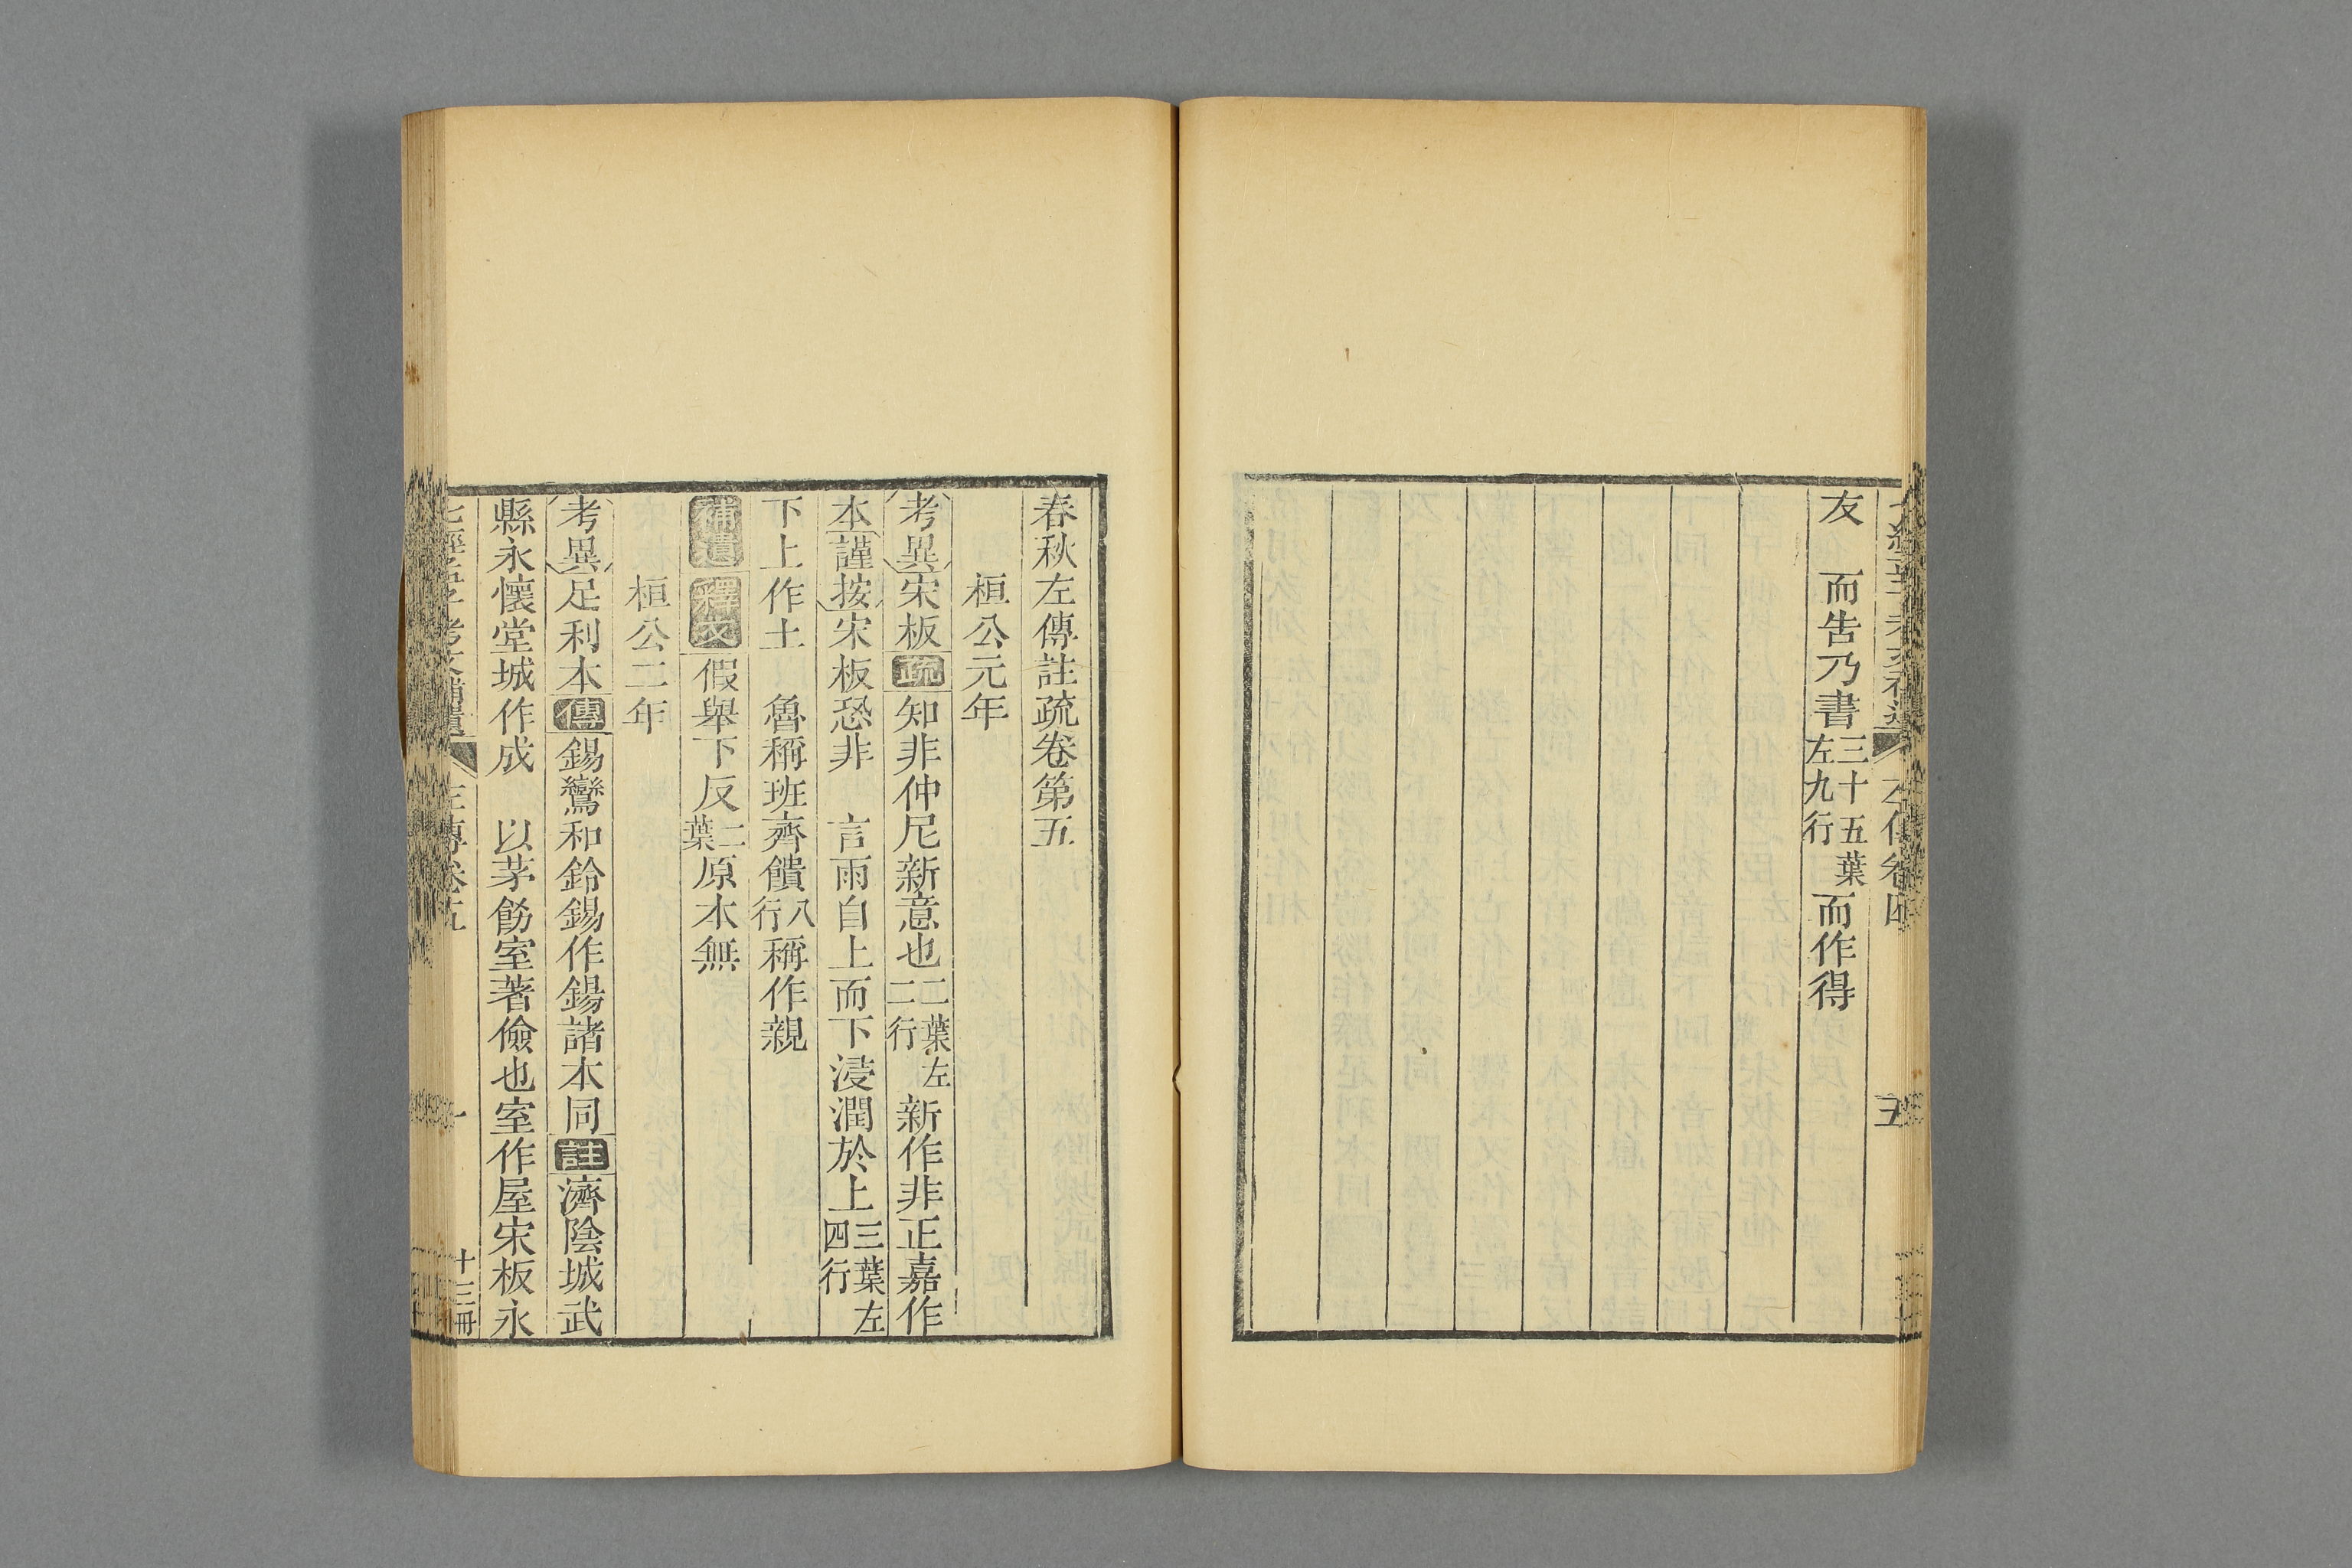 友　而告乃書三十五葉左九行而作得
春秋左傳註疏卷第五
桓公元年
考異宋板疏知非仲尼新意也二葉左二行新作非正嘉作
本謹按宋板恐非　言雨自上而下浸潤於上三葉左四行
下上作土　魯稱班齊饋八行稱作親
補遺釋文假舉下反二葉原本無
桓公二年
考異足利本傳錫鸞和鈴錫作鍚諸本同註濟陰城武
縣永懷堂城作成　以茅飭室著儉也室作屋宋板永
七經孟子考文補遺　左傳卷五　一　十三冊